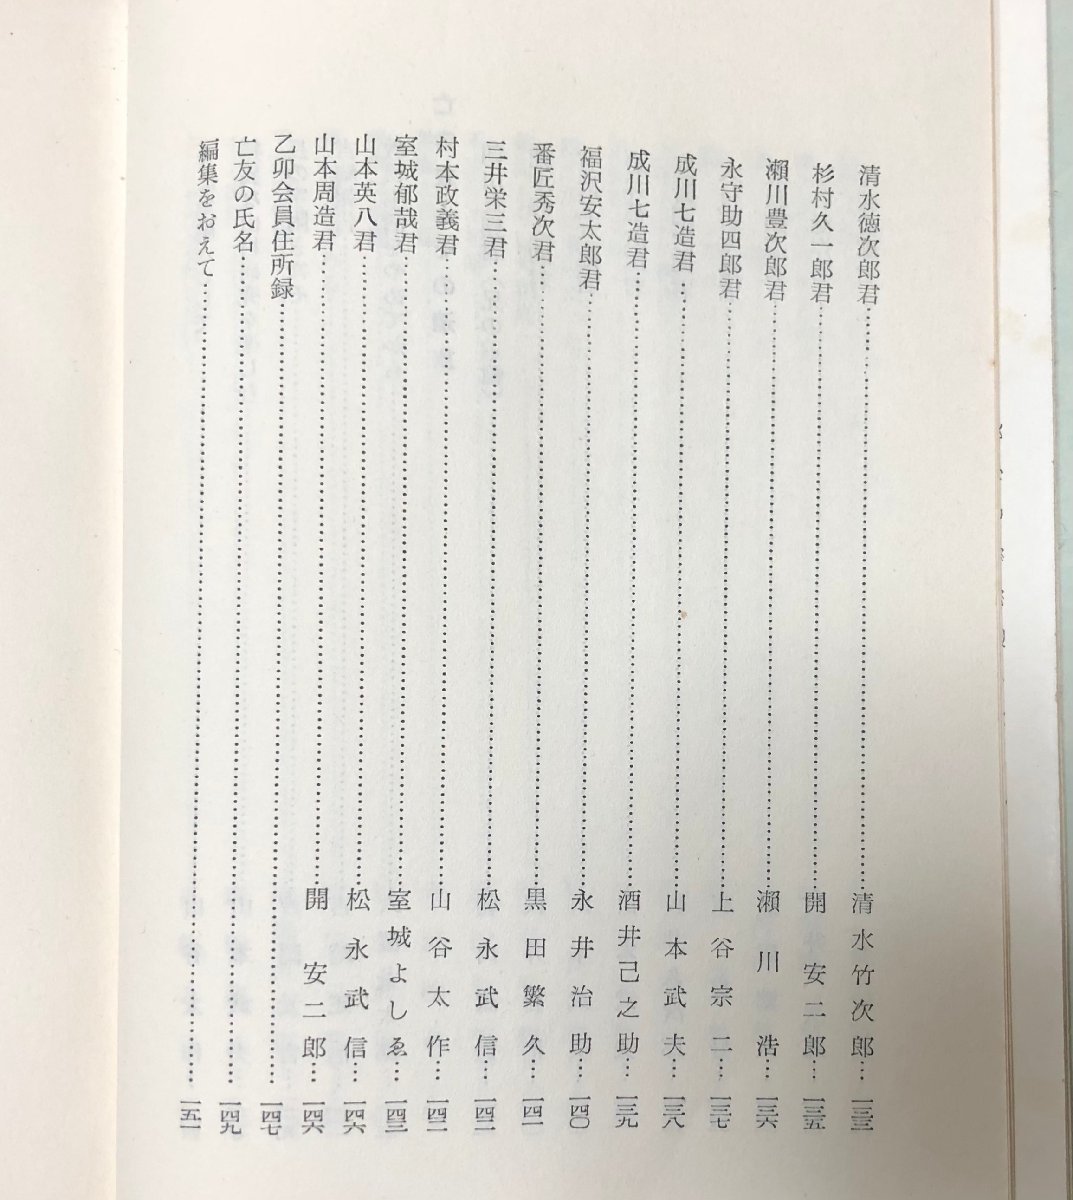 清水徳次郎君……清水竹次郎…一三三
杉村久一郎君……開安二郎…一三五
瀬川豊次郎君……瀬川浩…一三六
永守助四郎君……上谷宗二…一三七
成川七造君……山本武夫…一三八
成川七造君……酒井己之助…一三九
福沢安太郎君……永井治助…一四〇
番匠秀次君……黒田繁久…一四一
三井栄三君……松永武信…一四二
村本政義君……山谷太作…一四二
室城郁哉君……室城よしゑ…一四三
山本英八君……松永武信…一四六
山本周造君……開安二郎…一四六
乙卯会員住所録……一四七
亡友の氏名……一四九
編集をおえて……一五一